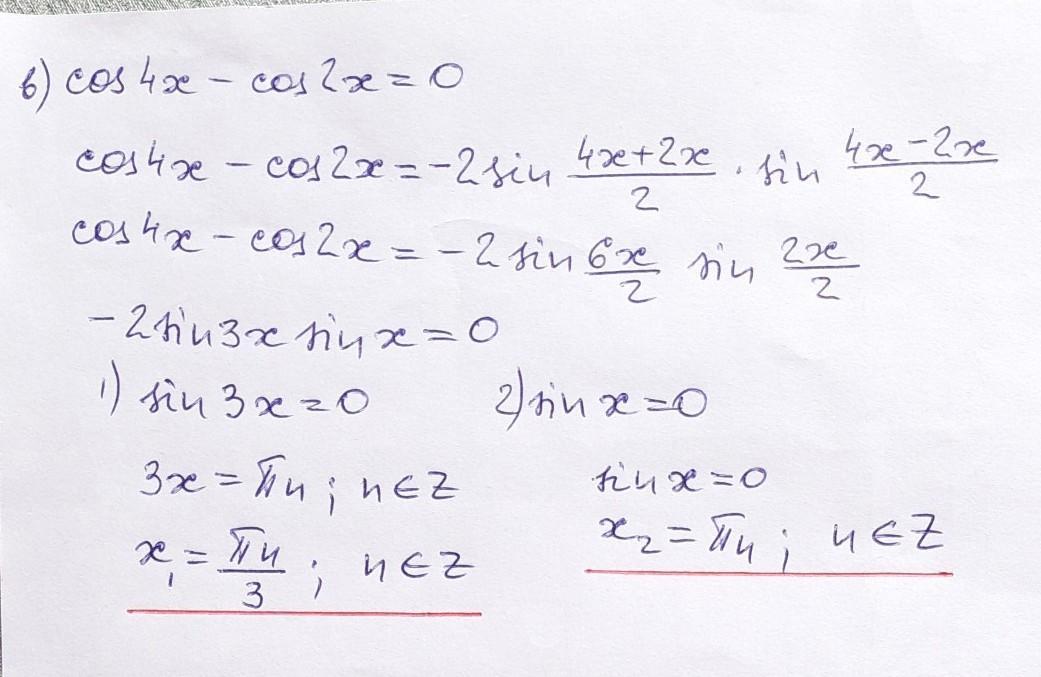 в) cos 4x − cos 2x = 0
cos 4x − cos 2x = −2 sin (4x+2x)/2 · sin (4x−2x)/2
cos 4x − cos 2x = −2 sin 6x/2 sin 2x/2
−2 sin 3x sin x = 0
1) sin 3x = 0 2) sin x = 0
3x = πn ; n ∈ Z sin x = 0
x₁ = πn/3 ; n ∈ Z x₂ = πn ; n ∈ Z